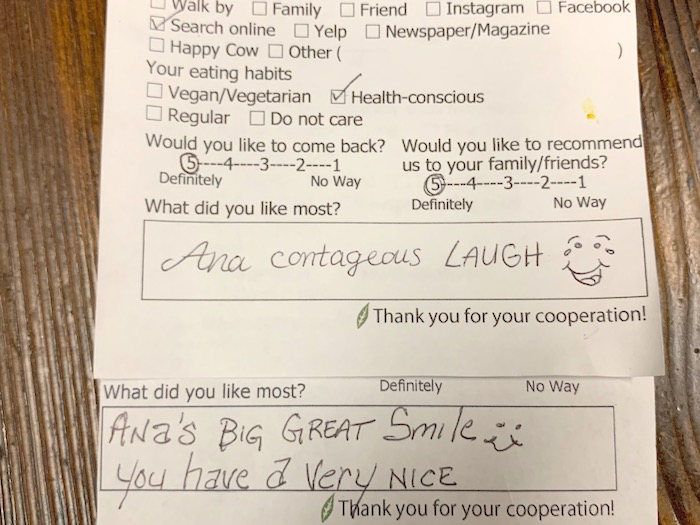 ☐ Walk by ☐ Family ☐ Friend ☐ Instagram ☐ Facebook
☑ Search online ☐ Yelp ☐ Newspaper/Magazine
☐ Happy Cow ☐ Other ( )
Your eating habits
☐ Vegan/Vegetarian ☑ Health-conscious
☐ Regular ☐ Do not care
Would you like to come back? Would you like to recommend
us to your family/friends?
5----4----3----2----1
Definitely No Way
5----4----3----2----1
Definitely No Way
What did you like most?
Ana contageous LAUGH
Thank you for your cooperation!
What did you like most? Definitely No Way
ANa's BiG GREAT Smile
You have a Very NICE
Thank you for your cooperation!